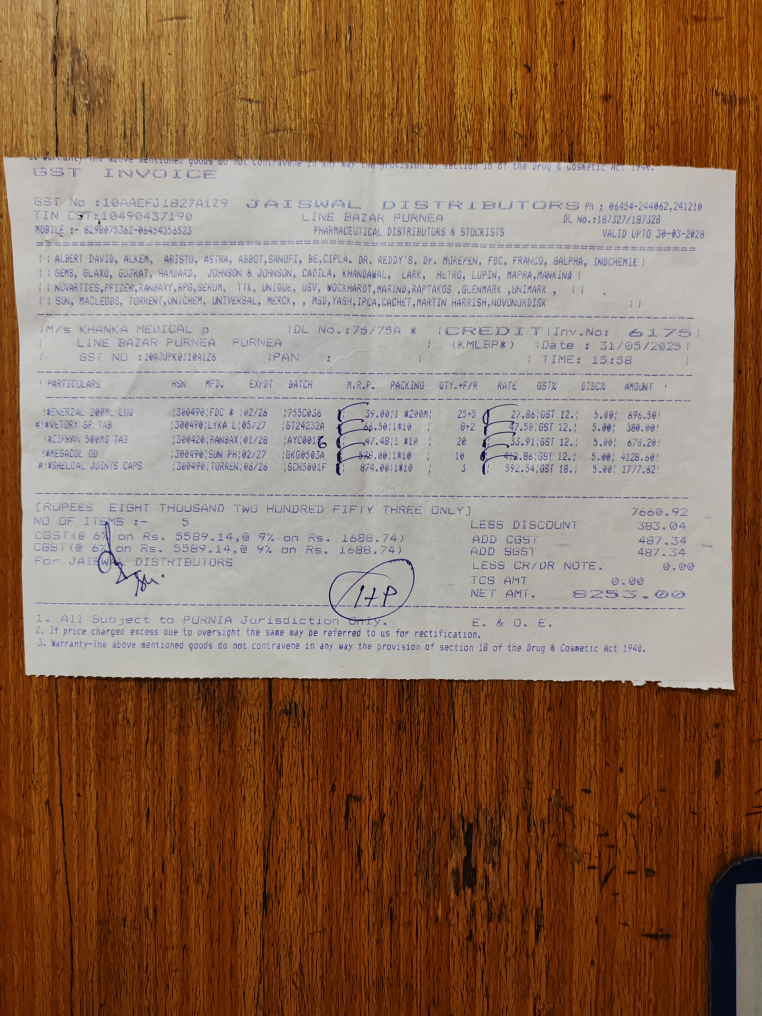 3. Warranty-The above mentioned goods do not contravene in any way the provision of section 18 of the Drug & Cosmetic Act 1940.
GST INVOICE
GST No :10AAEFJ1827A1Z9 JAISWAL DISTRIBUTORS Ph : 06454-244062,241210
TIN CST:10490437190 LINE BAZAR PURNEA DL No.:187327/187328
MOBILE :- 8298075362-06454356523 PHARMACEUTICAL DISTRIBUTORS & STOCKISTS VALID UPTO 30-03-2028
|| ALBERT DAVID, ALKEM, ARISTO, ASTRA, ABBOT,SANOFI, BE,CIPLA, DR. REDDY'S, Dr. MOREPEN, FDC, FRANCO, GALPHA, INDCHEMIE|
|| GEMS, GLAXO, GUJRAT, HAMDARD, JOHNSON & JOHNSON, CADILA, KHANDAWAL, LARK, HETRO, LUPIN, MAPRA,MANKIND |
|| NOVARTIES,PFIZER,RANBAXY,RPG,SERUM, TTK, UNIQUE, USV, WOCKHARDT,MARIND,RAPTAKOS ,GLENMARK ,UNIMARK , ||
|| SUN, MACLEODS, TORRENT,UNICHEM, UNIVERSAL, MERCK, , MSD,YASH,IPCA,CACHET,MARTIN HARRISH,NOVONORDISK ||
|M/s KHANKA MEDICAL p |DL No.:75/75A * |CREDIT|Inv.No: 6175|
| LINE BAZAR PURNEA PURNEA | (KMLBP*) |Date : 31/05/2025|
| GST NO :10AJUPK0110A1Z6 |PAN : | | TIME: 15:58|
! PARTICULARS HSN MFG. EXPDT BATCH M.R.P. PACKING QTY.+F/R RATE GST% DISC% AMOUNT !
!#ENERZAL 200ML LUQ |300490|FDC * |02/26 |755C036 | 39.00|1 *200M| 25+5 | 27.86|GST 12.| 5.00| 696.50!
#!*VETORY SP TAB |300490|LYKA L|05/27 |GT24232A | 66.50|1*10 | 8+2 | 47.50|GST 12.| 5.00| 380.00!
!#CIFRAN 500MG TAB |300420|RANBAX|01/28 |AYC0016 | 47.48|1 *10 | 20 | 33.91|GST 12.| 5.00| 678.20!
!#MESACOL OD |300490|SUN PH|02/27 |GKG0503A | 578.00|1*10 | 10 | 412.86|GST 12.| 5.00| 4128.60!
#!*SHELCAL JOINTS CAPS |300490|TORREN|06/26 |SCN5001F | 874.00|1*10 | 3 | 592.54|GST 18.| 5.00| 1777.62!
[RUPEES EIGHT THOUSAND TWO HUNDRED FIFTY THREE ONLY] 7660.92
NO OF ITEMS :- 5 LESS DISCOUNT 383.04
CGST(@ 6% on Rs. 5589.14,@ 9% on Rs. 1688.74) ADD CGST 487.34
CGST(@ 6% on Rs. 5589.14,@ 9% on Rs. 1688.74) ADD SGST 487.34
For JAISWAL DISTRIBUTORS LESS CR/DR NOTE. 0.00
TCS AMT 0.00
NET AMT. 8253.00
1. All Subject to PURNIA Jurisdiction Only. E. & O. E.
2. If price charged excess due to oversight the same may be referred to us for rectification.
3. Warranty-The above mentioned goods do not contravene in any way the provision of section 18 of the Drug & Cosmetic Act 1940.